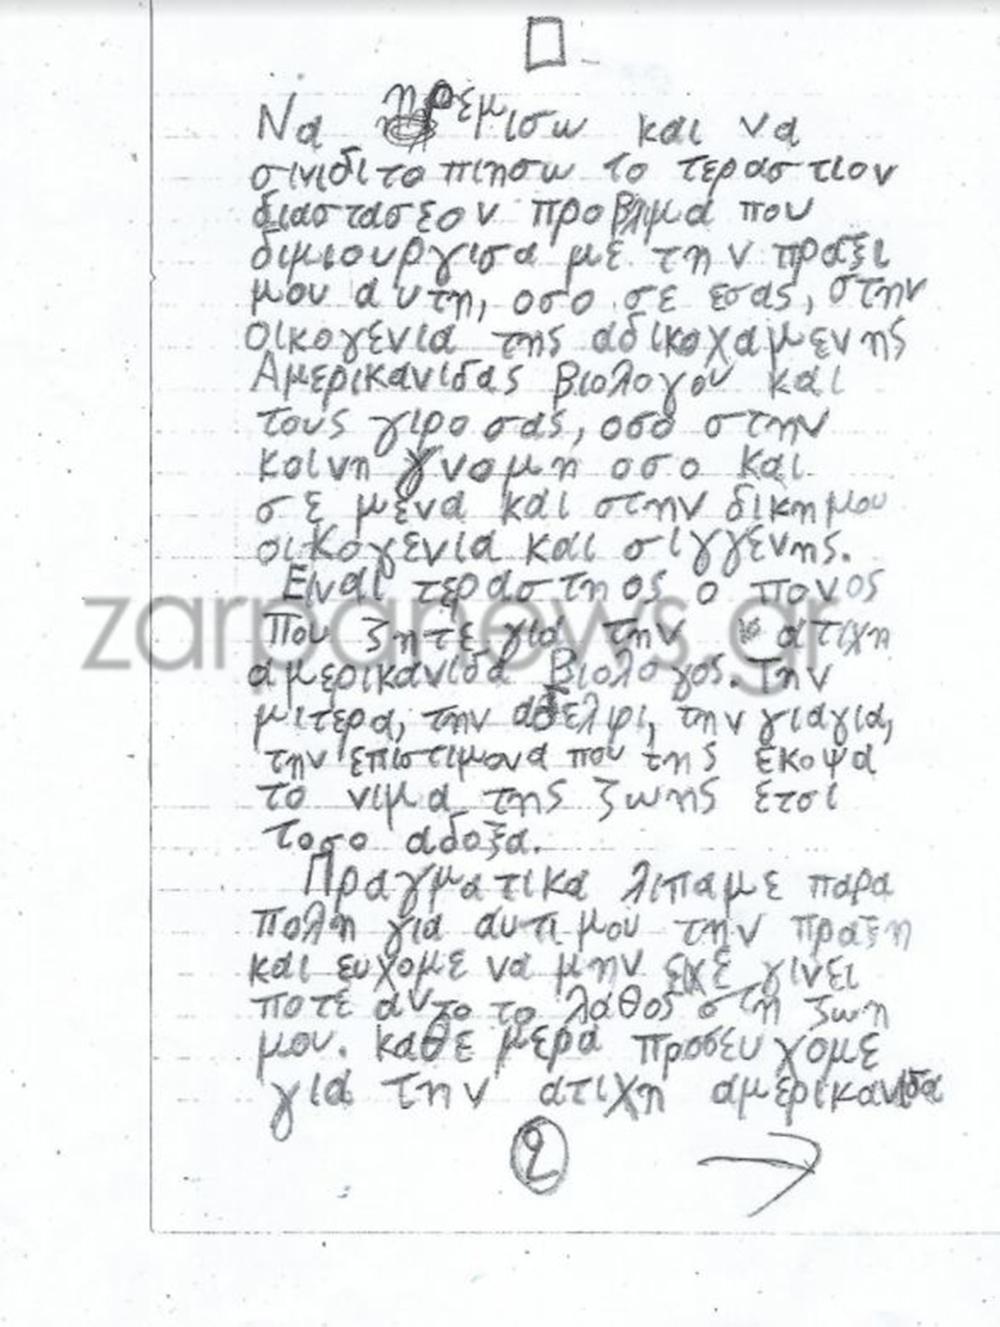 Να ηρεμισω και να
σινιδιτοπιησω το τεραστιον
διαστασεον προβλιμα που
διμιουργισα με την πραξι
μου αυτη, οσο σε εσας, στην
οικογενια της αδικοχαμενης
Αμερικανιδας βιολογου και
τους γιρο σας, οσο στην
κοινη γνομη οσο και
σε μενα και στην δικη μου
οικογενια και σιγγενης.
Ειναι τεραστηος ο πονος
που ζητε για την ατιχη
αμερικανιδα Βιολογος. Την
μιτερα, την αδελφι, την γιαγια,
την επιστιμονα που της εκοψα
το νιμα της ζωης ετσι
τοσο αδοξα.
Πραγματικα λιπαμε παρα
πολη για αυτι μου την πραξη
και ευχομε να μην ειχε γινει
ποτε αυτο το λαθος στη ζωη
μου. καθε μερα προσευχομε
για την ατιχη αμερικανιδα
2
zarpanews.gr